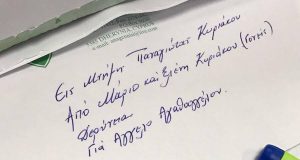 Εις Μνήμη Παναγιώτας Κυριάκου
Από Μάριο και Ελένη Κυριάκου (γονείς)
Κερύνεια
Για Άγγελο Αγαθαγγέλου.